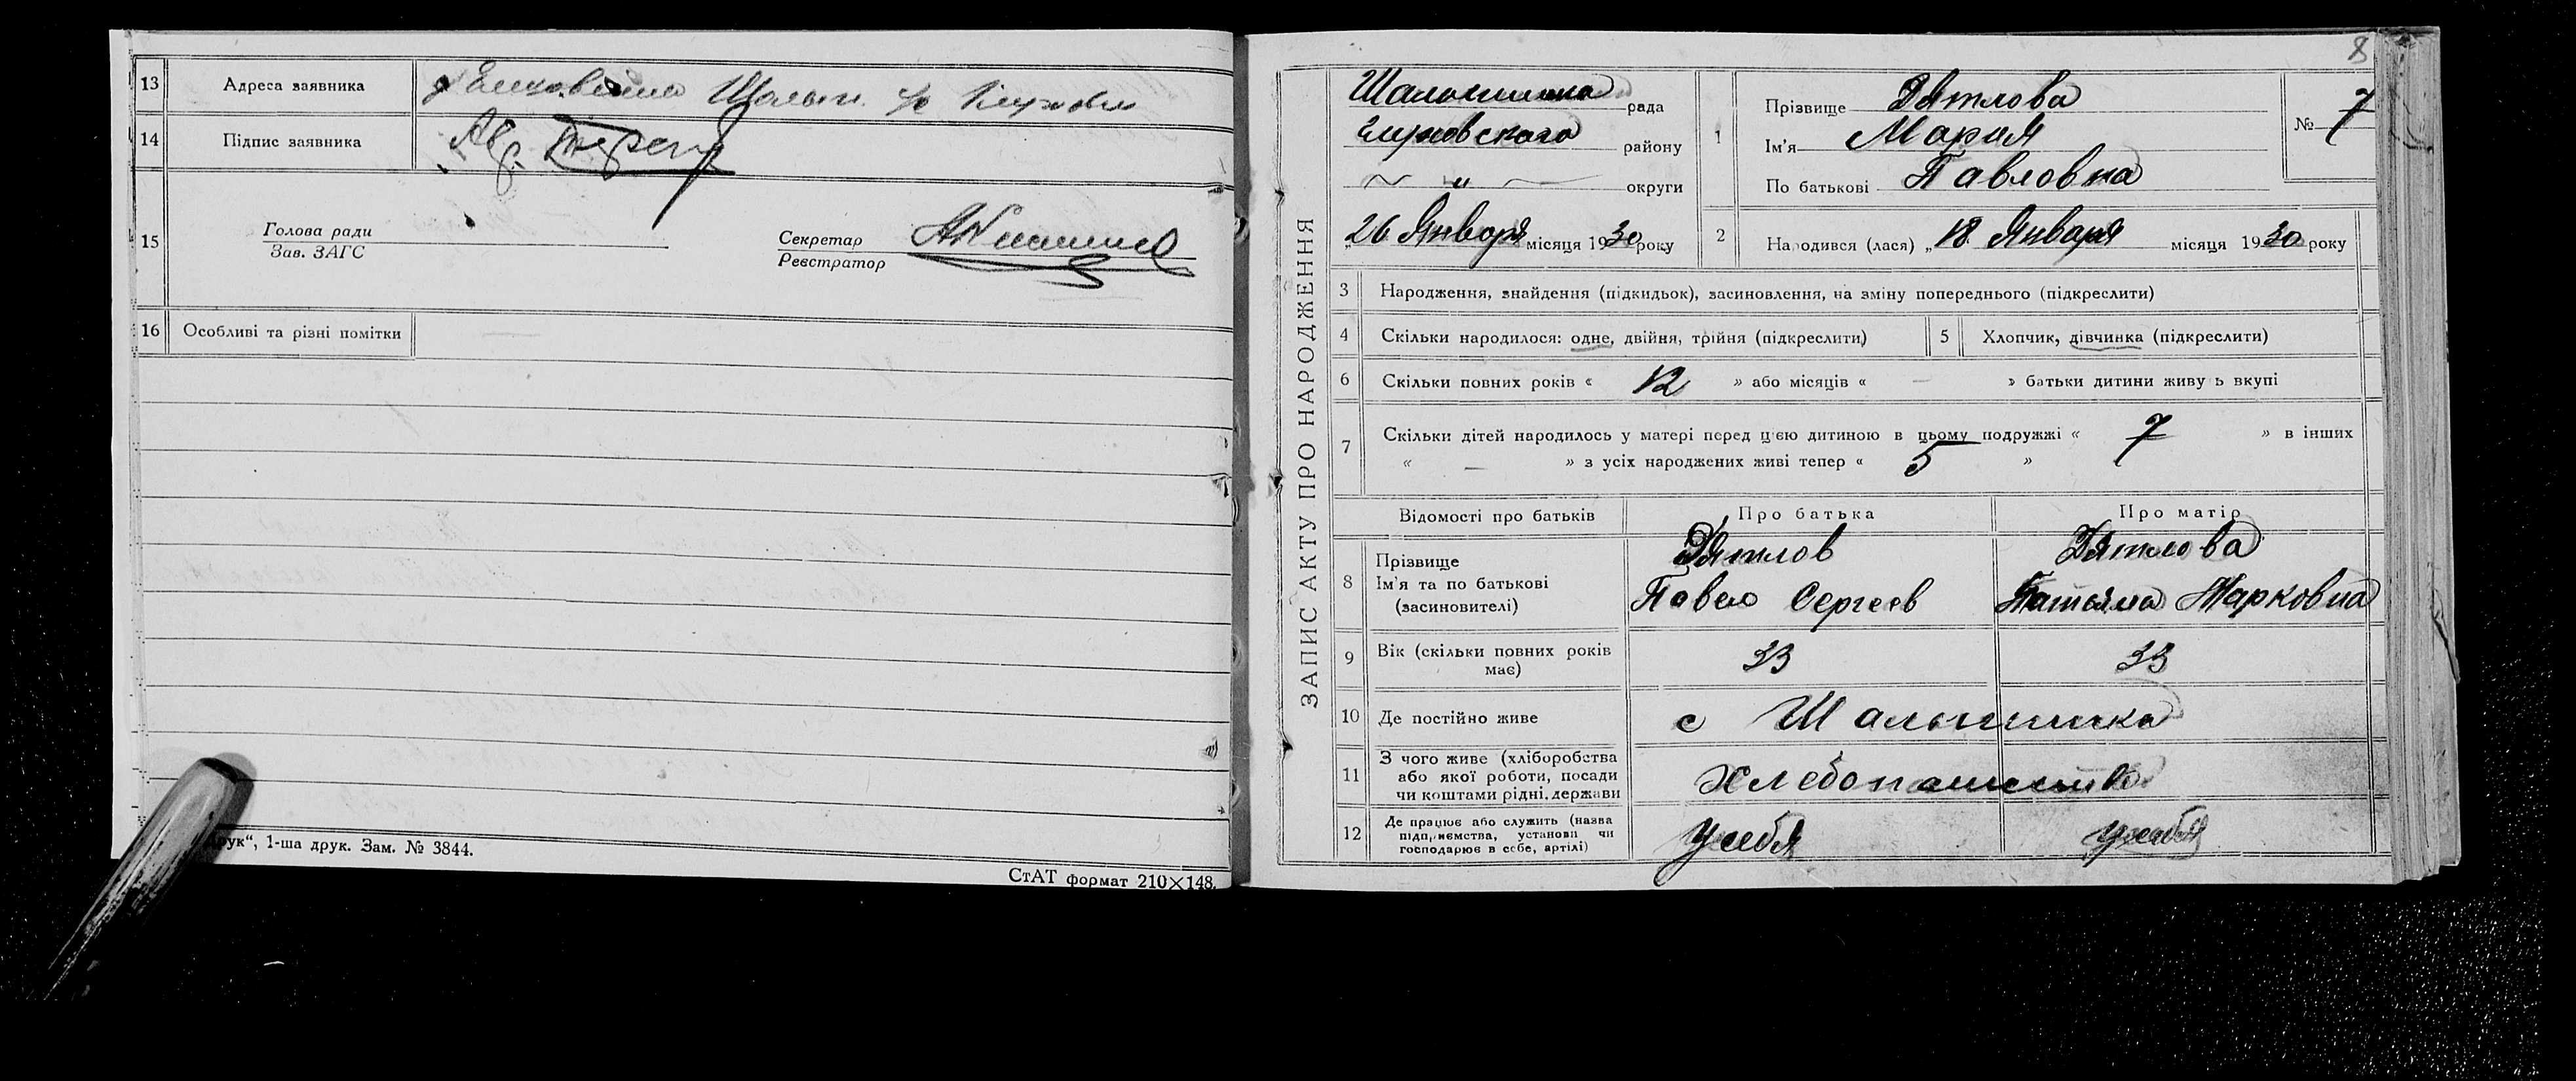 13 Адреса заявника
14 Підпис заявника
15 Голова ради
Зав. ЗАГС
Секретар
Реєстратор
16 Особливі та різні помітки
рук“, 1-ша друк. Зам. № 3844.
СтАТ формат 210×148.
8
ЗАПИС АКТУ ПРО НАРОДЖЕННЯ
рада
району
〜 „ 〜 округи
„26 Января місяця 1930 року
1 Прізвище Дятлова
Ім’я Мария
По батькові Павловна
№ 7
2 Народився (лася) „18 Января місяця 1930 року
3 Народження, знайдення (підкидьок), засиновлення, на зміну попереднього (підкреслити)
4 Скільки народилося: одне, двійня, трійня (підкреслити)
5 Хлопчик, дівчинка (підкреслити)
6 Скільки повних років « 12 » або місяців « — » батьки дитини живу ь вкупі
7 Скільки дітей народилось у матері перед цією дитиною в цьому подружжі « 7 » в інших
« — » з усіх народжених живі тепер « 5 »
Відомості про батьків Про батька Про матір
8 Прізвище
Ім’я та по батькові
(засиновителі)
Дятлов
Павел Сергеев
Дятлова
Татьяна Марковна
9 Вік (скільки повних років
має)
33 33
10 Де постійно живе с
11 З чого живе (хліборобства
або якої роботи, посади
чи коштами рідні, держави
Хлебопашество
12 Де працює або служить (назва
підприємства, установи чи
господарює в себе, артілі)
У себя у себя